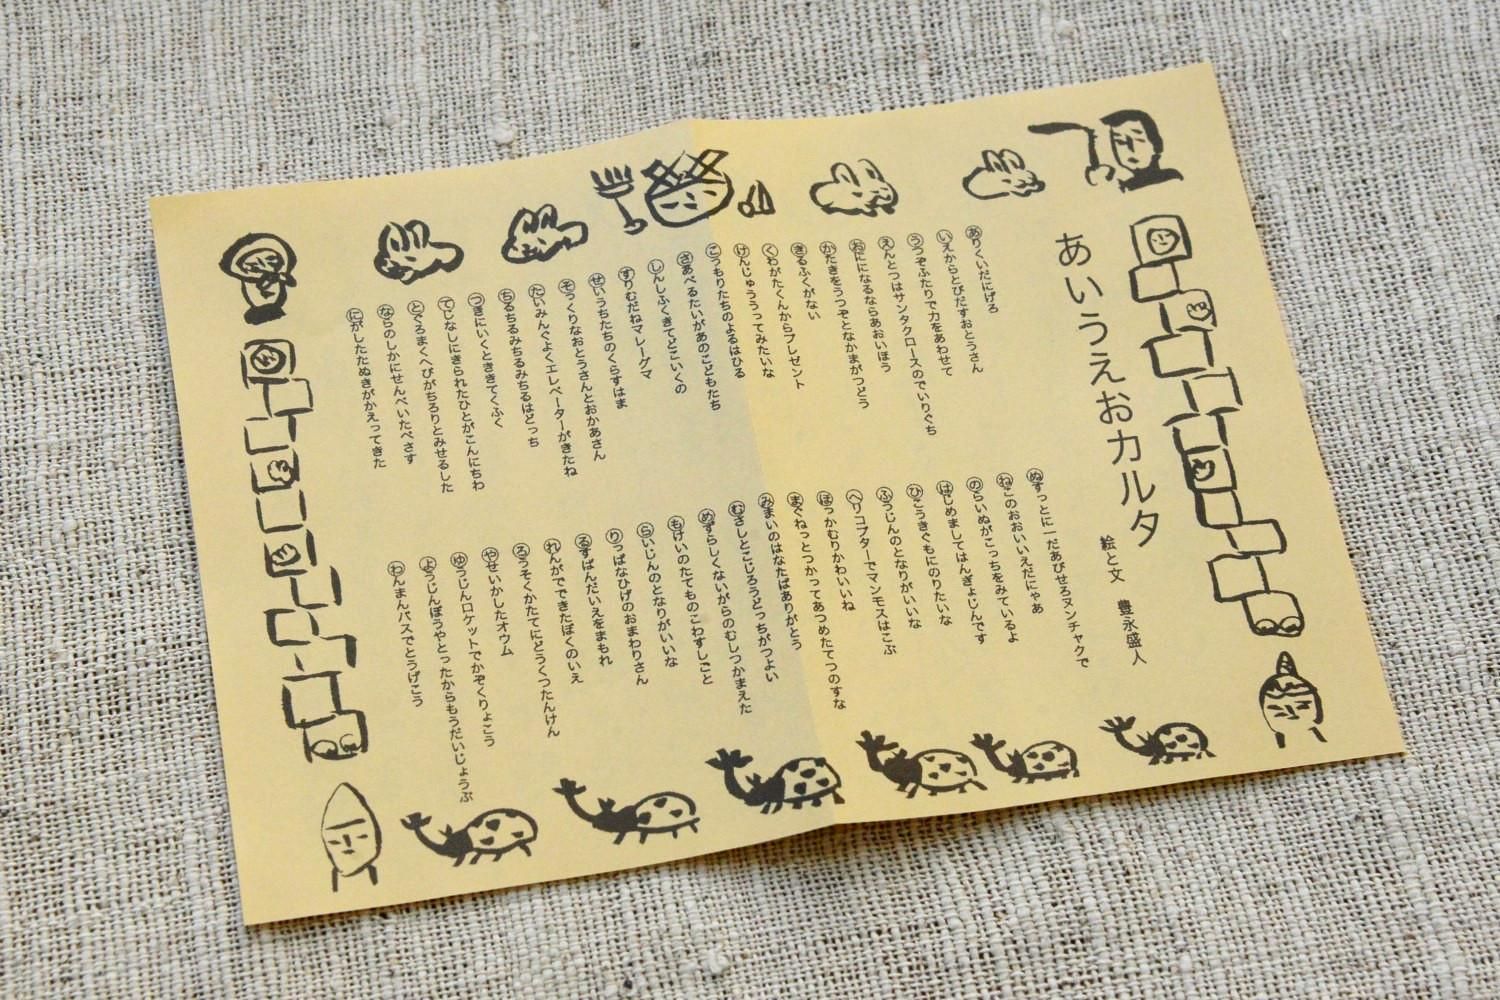 あいうえおカルタ
絵と文　豊永盛人
ありくいだにげろ
いえからとびだすおとうさん
うつぞふたりで力をあわせて
えんとつはサンタクロースのでいりぐち
おにになるならあおいほう
かたきをうつぞとなかまがつどう
きるふくがない
くわがたくんからプレゼント
けんじゅううってみたいな
こうもりたちのよるはひる
さあべるたいがあのこどもたち
しんしふくきてどこいくの
すりむだねマレーグマ
せいうちたちのくらすはま
そっくりなおとうさんとおかあさん
たいみんぐよくエレベーターがきたね
ちるちるみちるみちるはどっち
つきにいくときてくふく
てじなしにきられたひとがこんにちわ
とぐろまくへびがちろりとみせるした
ならのしかにせんべいたべさす
にがしたたぬきがかえってきた
ぬすっとに一だあびせろヌンチャクで
ねこのおおいいえだにゃあ
のらいぬがこっちをみているよ
はじめましてはんぎょじんです
ひこうきぐもにのりたいな
ふうじんのとなりがいいな
ヘリコプターでマンモスはこぶ
ほっかむりかわいいね
まぐねっとつかってあつめたてつのすな
みまいのはなたばありがとう
むさしとこじろうどっちがつよい
めずらしくないがらのむしつかまえた
もけいのたてものこわすしごと
らいじんのとなりがいいな
りっぱなひげのおまわりさん
るすばんだいえをまもれ
れんがでできたぼくのいえ
ろうそくかたてにどうくつたんけん
やせいかしたオウム
ゆうじんロケットでかぞくりょこう
ようじんぼうやとったからもうだいじょうぶ
わんまんバスでとうげこう